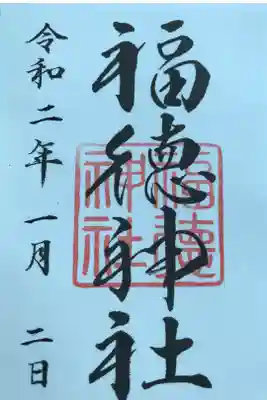 福徳神社
福德神社
令和二年一月二日